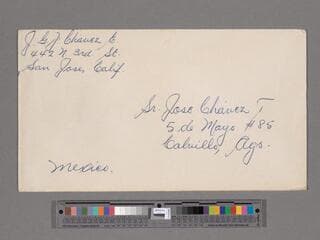 J. G. J. Chavez E.
442 N. 3rd St.
San Jose, Calif.
Sr. Jose Chávez T
5 de Mayo #85
Calvillo, Ags.
Mexico.